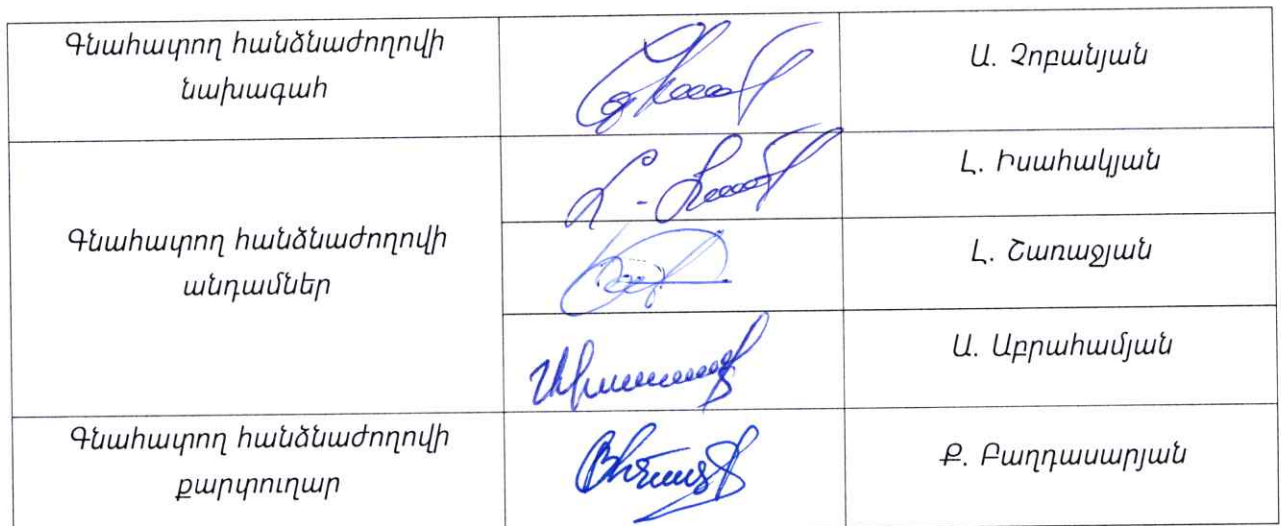 Գնահատող հանձնաժողովի
նախագահ
Ա. Չոբանյան
Գնահատող հանձնաժողովի
անդամներ
Լ. Իսահակյան
Լ. Շառաջյան
Ա. Աբրահամյան
Գնահատող հանձնաժողովի
քարտուղար
Ք. Բաղդասարյան